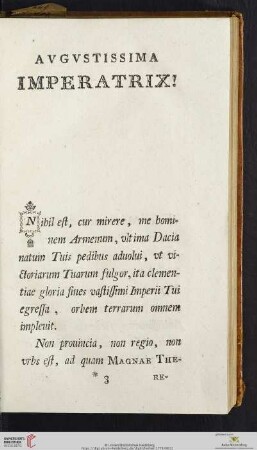 AVGVSTISSIMA
IMPERATRIX!
Nihil est, cur mirere, me homi-
nem Armenum, vltima Dacia
natum Tuis pedibus aduolui, vt vi-
ctoriarum Tuarum fulgor, ita clemen-
tiae gloria fines vastissimi Imperii Tui
egressa, orbem terrarum omnem
impleuit.
Non prouincia, non regio, non
vrbs est, ad quam MAGNAE THE-
* 3
RE-